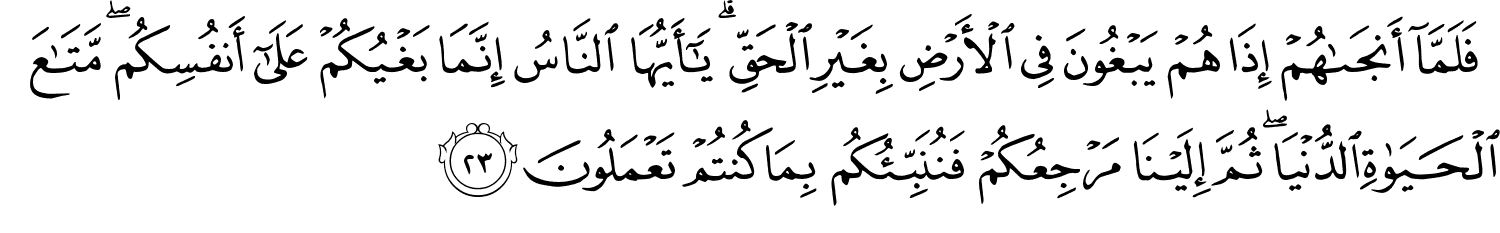 فَلَمَّآ أَنجَىٰهُمۡ إِذَا هُمۡ يَبۡغُونَ فِي ٱلۡأَرۡضِ بِغَيۡرِ ٱلۡحَقِّۗ يَٰٓأَيُّهَا ٱلنَّاسُ إِنَّمَا بَغۡيُكُمۡ عَلَىٰٓ أَنفُسِكُمۖ مَّتَٰعَ
ٱلۡحَيَوٰةِ ٱلدُّنۡيَاۖ ثُمَّ إِلَيۡنَا مَرۡجِعُكُمۡ فَنُنَبِّئُكُم بِمَا كُنتُمۡ تَعۡمَلُونَ ٢٣